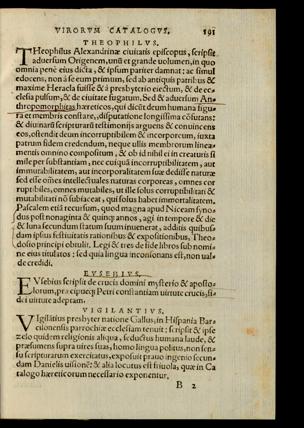 VIRORVM CATALOGVS. 191
THEOPHILVS.
THeophilus Alexandrinæ ciuitatis episcopus, scripsit
aduersum Origenem, unū et grande uolumen, in quo
omnia penè eius dicta, & ipsum pariter damnat: ac simul
edocens, non à se eum primum, sed ab antiquis patribus &
maxime Heracla fuisse & à presbyterio eiectum, & de ec-
clesia pulsum, & de ciuitate fugatum. Sed & aduersum An-
thropomorphitas hæreticos, qui dicūt deum humana figu-
ra et membris constare, disputatione longissima cōfutans:
& diuinarū scripturarū testimonijs arguens & conuincens
eos, ostendit deum incorruptibilem & incorporeum, iuxta
patrum fidem credendum, neque ullis membrorum linea-
mentis omnino compositum, & ob id nihil ei in creaturis si
mile per substantiam, nec cuiquā incorruptibilitatem, aut
immutabilitatem, aut incorporalitatem suæ dedisse naturæ
sed esse oēs intellectuales naturas corporeas, omnes cor
ruptibiles, omnes mutabiles, ut ille solus corruptibilitati &
mutabilitati nō subiaceat, qui solus habet immortalitatem.
Pascalem etiā recursum, quod magna apud Niceam syno-
dus post nonaginta & quinque annos, agi in tempore & die
& luna secundum statum suum inuenerat, additis quibus-
dam ipsius festiuitatis rationibus & expositionibus, Theo-
dosio principi obtulit. Legi & tres de fide libros sub nomi-
ne eius titulatos, sed quia lingua inconsonans est, non ual-
de credidi.
EVSEBIVS.
EVsebius scripsit de crucis domini mysterio & aposto-
lorum, præcipueque Petri constantiam uirtute crucis, si-
dei uirtute adeptam.
VIGILANTIVS.
VIgilantius presbyter natione Gallus, in Hispania Bar-
cilonensis parrochiæ ecclesiam tenuit: scripsit & ipse
zelo quidem religionis aliqua, seductus humana laude, &
præsumens supra uires suas, homo lingua politus, non sen-
su scripturarum exercitatus, exposuit prauo ingenio secun-
dam Danielis uisionē: & alia locutus est friuola, quæ in Ca
talogo hæreticorum necessario exponentur.
B 2